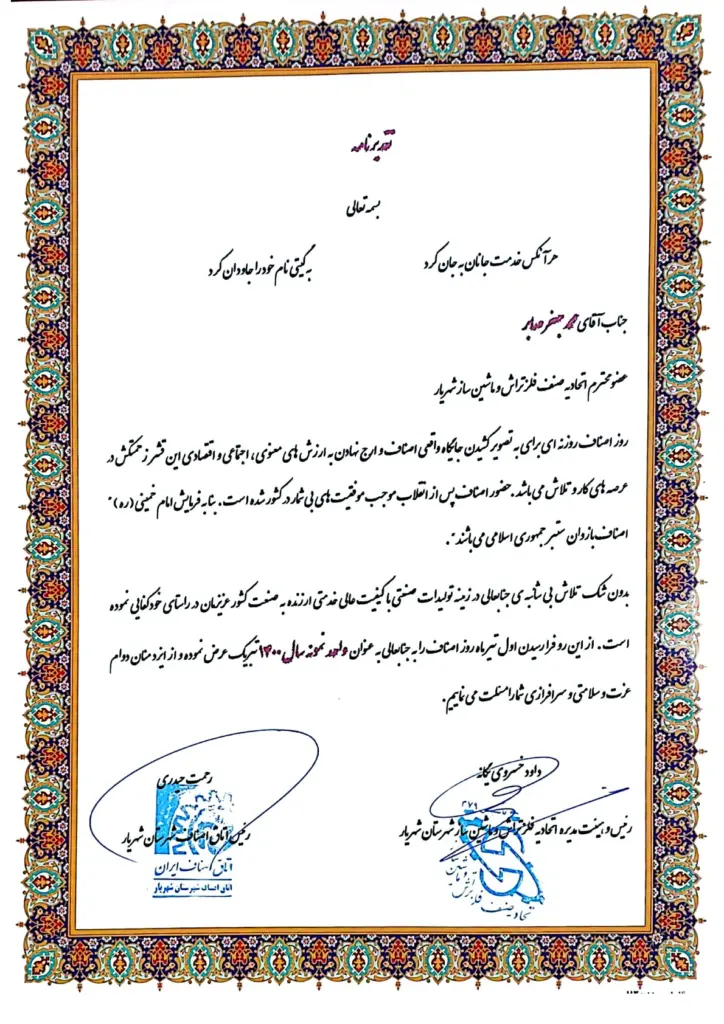 تقدیرنامه
بسمه تعالی
هر آنکس خدمت جانان به جان کرد به گیتی نام خود را جاودان کرد
جناب آقای محمد جعفر
عضو محترم اتحادیه صنف فلزتراش و ماشین ساز شهریار
روز اصناف روزنه ای برای به تصویر کشیدن جایگاه واقعی اصناف و ارج نهادن به ارزش های معنوی، اجتماعی و اقتصادی این قشر زحمتکش در
عرصه های کار و تلاش می باشد. حضور اصناف پس از انقلاب موجب موفقیت های بی شمار در کشور شده است. بنا به فرمایش امام خمینی (ره) "
اصناف بازوان ستبر جمهوری اسلامی می باشند".
بدون شک تلاش بی شائبه ی جنابعالی در زمینه تولیدات صنعتی با کیفیت عالی خدمتی ارزنده به صنعت کشور عزیزمان در راستای خودکفایی نموده
است. از این رو فرارسیدن اول تیرماه روز اصناف را به جنابعالی به عنوان واحد نمونه سال ۱۴۰۰ تبریک عرض نموده و از ایزد منان دوام
عزت و سلامتی و سرافرازی شما را مسئلت می نماییم.
داود خسروی یگانه
رئیس و هیئت مدیره اتحادیه فلزتراش و ماشین ساز شهرستان شهریار
رحمت حیدری
رئیس اتاق اصناف شهرستان شهریار
اتاق اصناف ایران
اتاق اصناف شهرستان شهریار